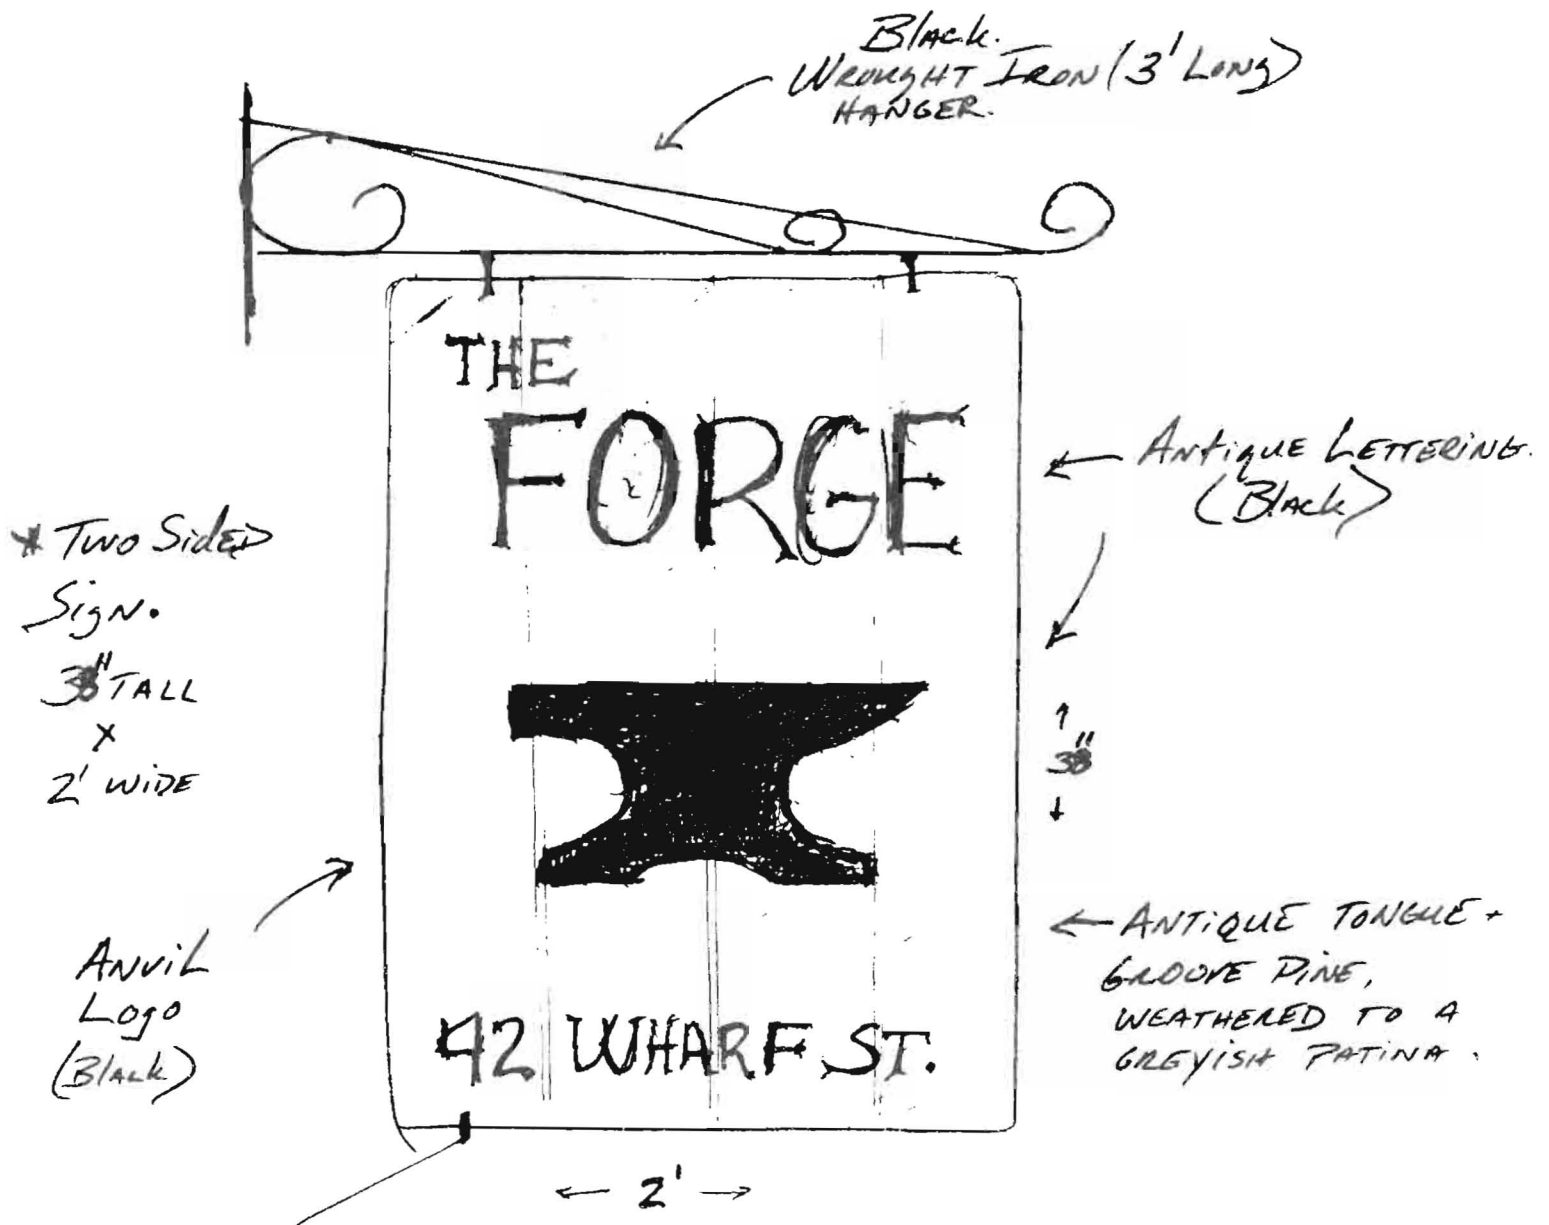 Black.
WROUGHT IRON (3' LONG)
HANGER.
THE
FORGE
ANTiQUE LETTERING.
(Black)
* TWO SiDED
SigN.
TALL
x
2' WiDE
ANViL
Logo
(Black)
ANTiQUE TONGUE +
GROOVE PINE,
WEATHERED TO A
GREYiSH PATINA.
42 WHARF ST.
2'